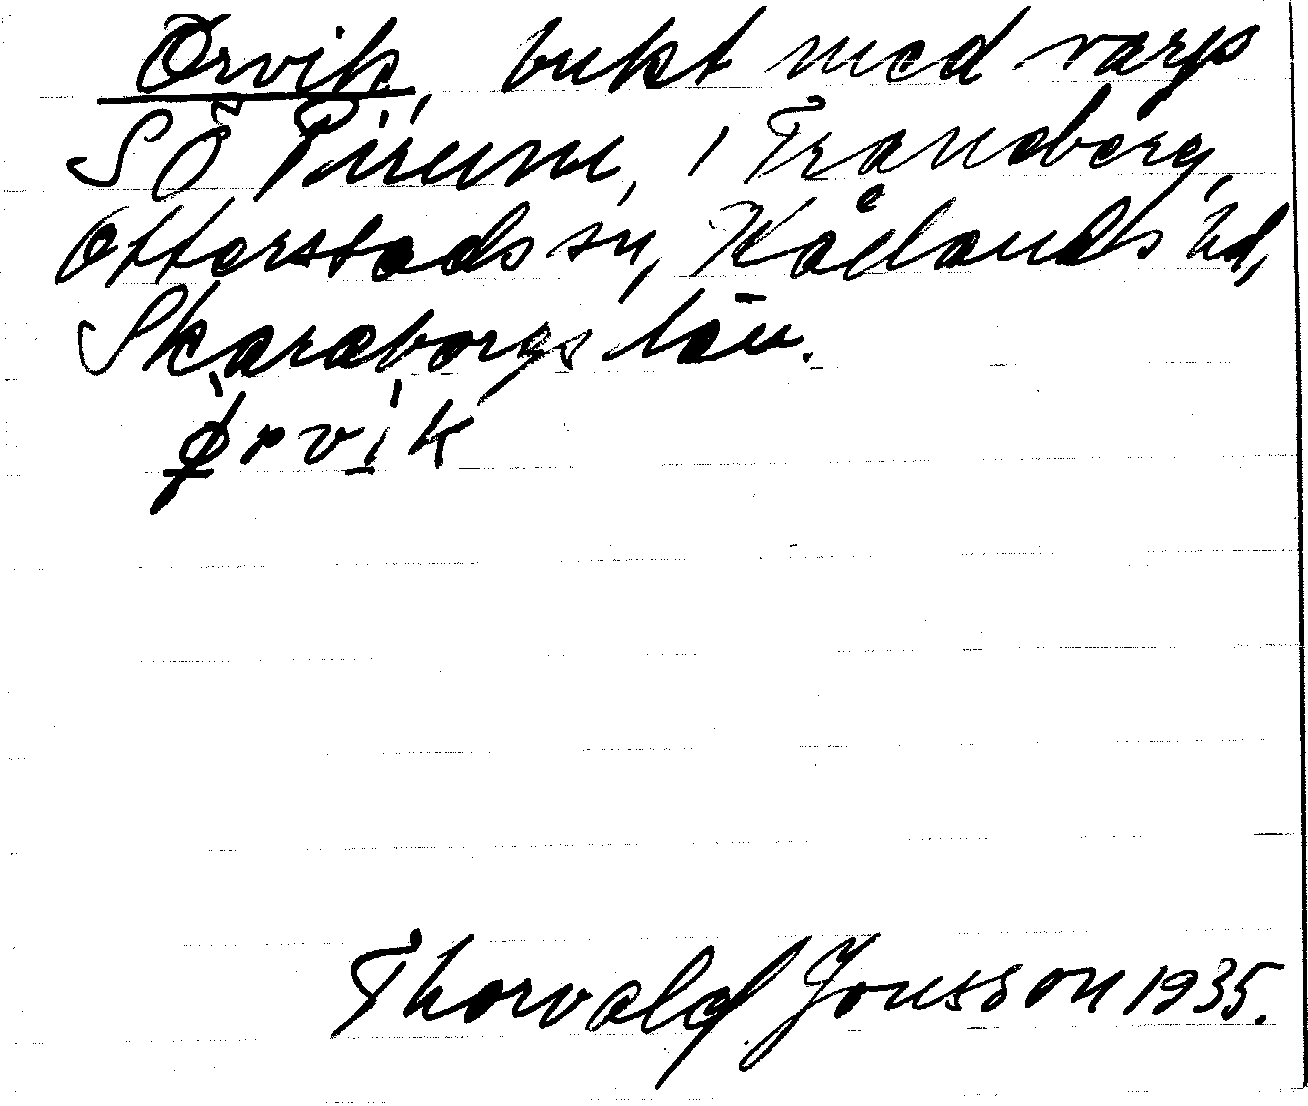 Örvik, bukt med varp
SÖ Pirum, i Traneberg,
Otterstads sn, Kållands hd,
Skaraborgs län.
ø̀rvík
Thorvald Jonsson 1935.